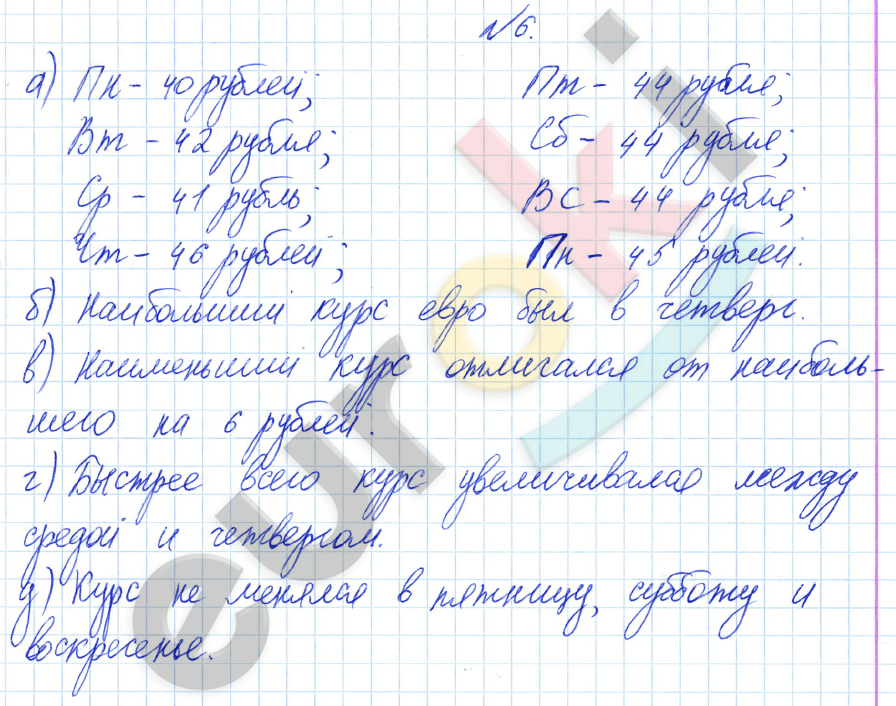 №6.
а) Пн - 40 рублей; Пт - 44 рубля;
Вт - 42 рубля; Сб - 44 рубля;
Ср - 41 рубль; Вс - 44 рубля;
Чт - 46 рублей; Пн - 45 рублей.
б) Наибольший курс евро был в четверг.
в) Наименьший курс отличался от наиболь-
шего на 6 рублей.
г) Быстрее всего курс увеличивался между
средой и четвергом.
д) Курс не менялся в пятницу, субботу и
воскресенье.
euroki